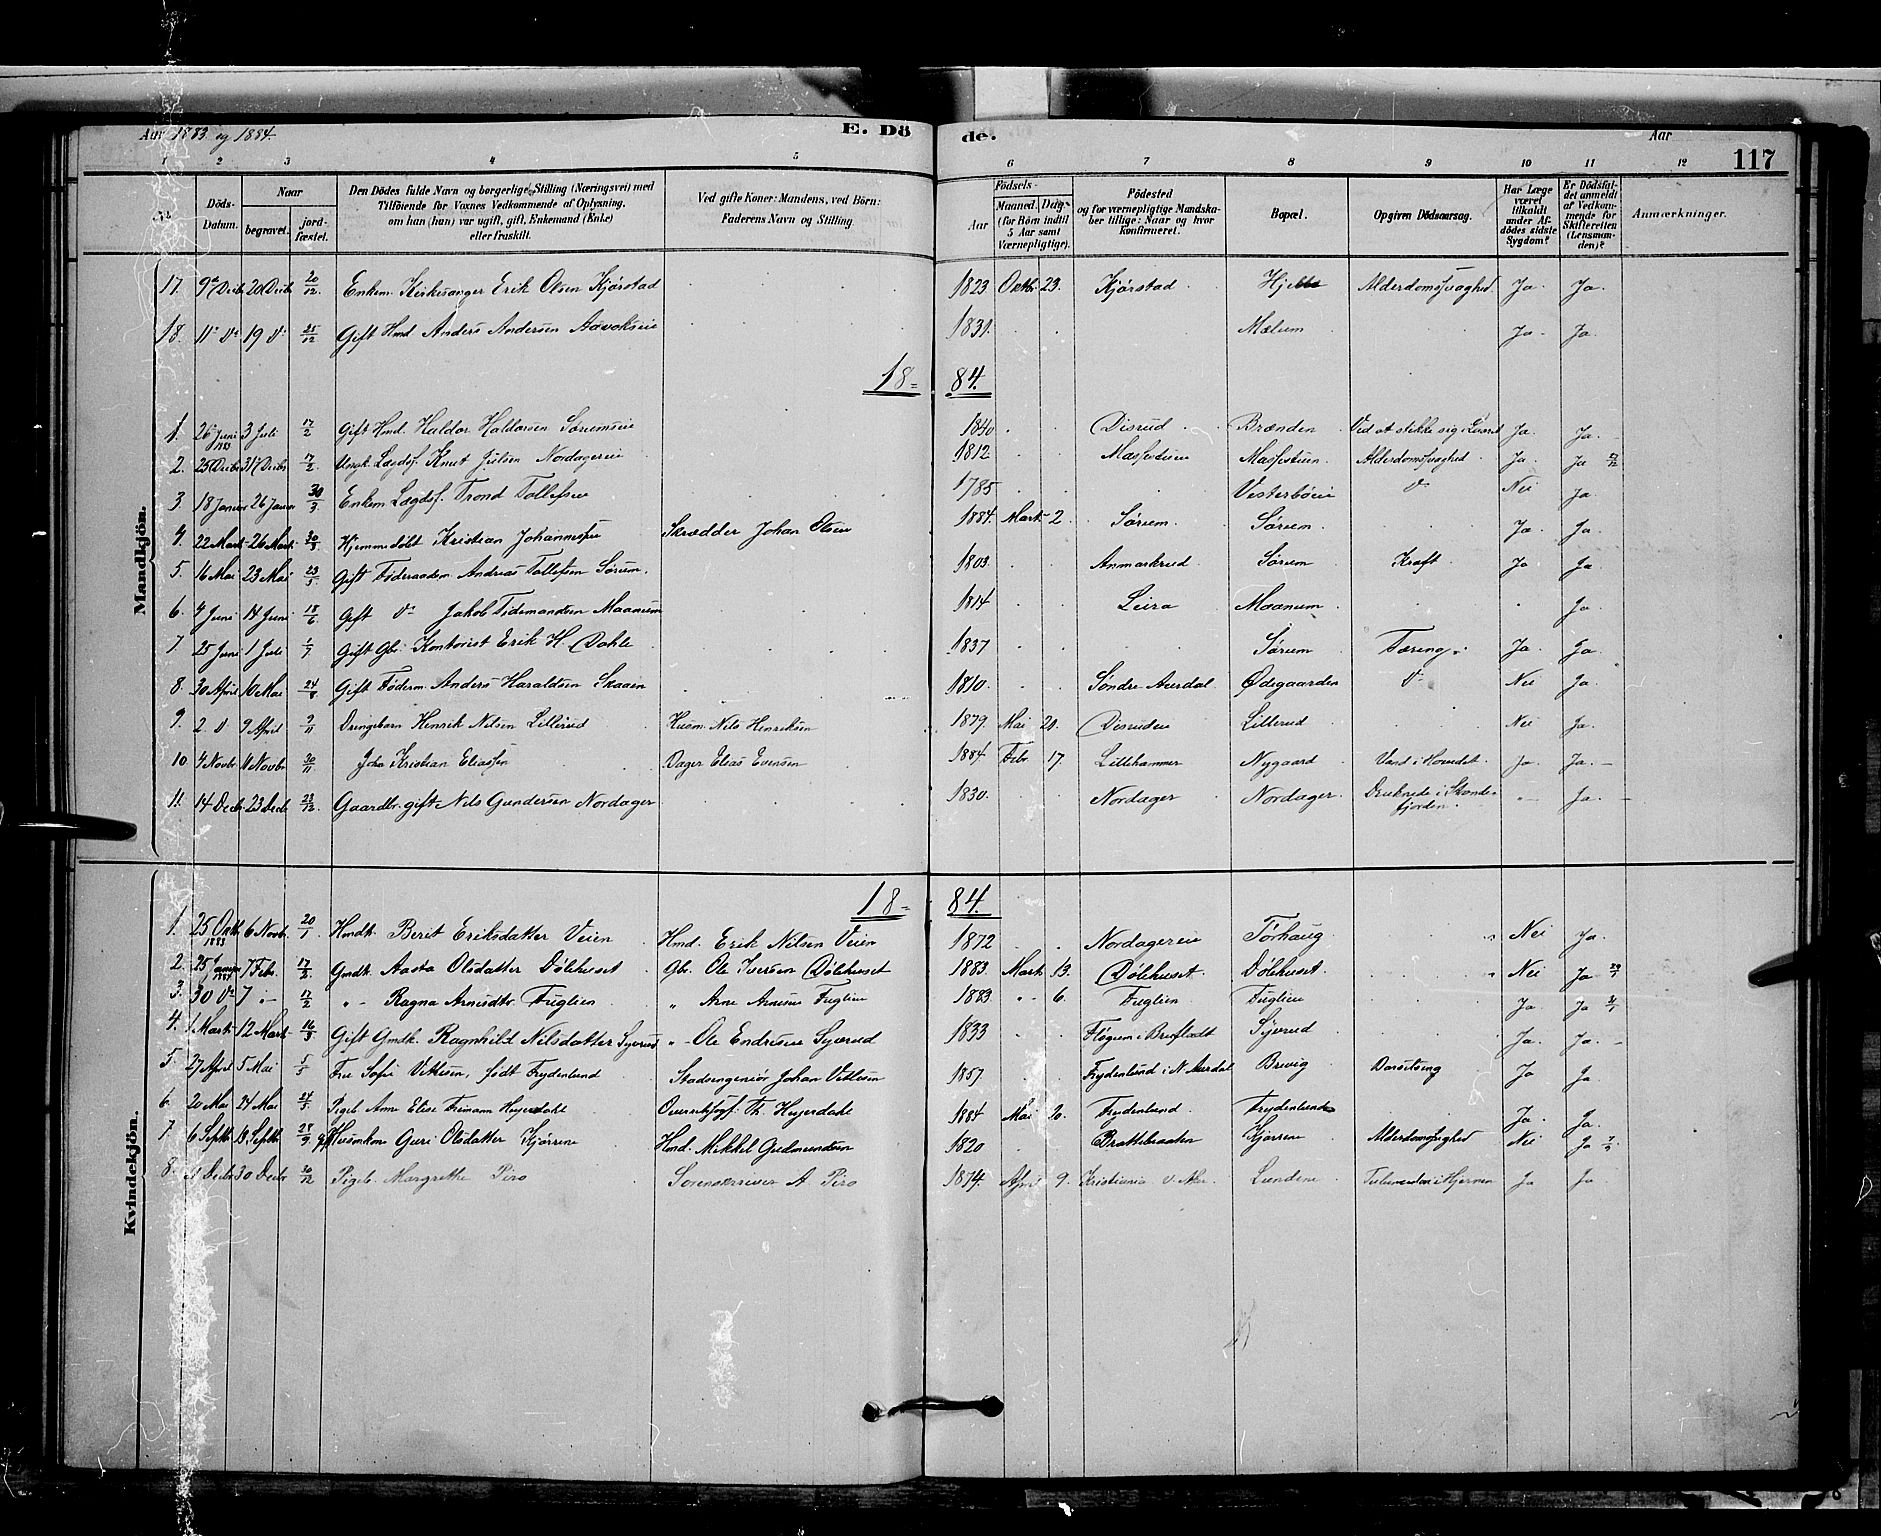 Aar 1883 og 1884. E. Dö de. Aar 117
1 2 3 4 5 6 7 8 9 10 11 12
No. Döds-Datum. Naar begravet. jordfæstet. Den Dödes fulde Navn og borgerlige Stilling (Næringsvei) med Tilföiende for Voxnes Vedkommende af Oplysning, om han (hun) var ugift, gift, Enkemand (Enke) eller fraskilt. Ved gifte Koner: Mandens, ved Börn: Faderens Navn og Stilling. Födsels- Aar Maaned. Dag. (for Börn indtil 5 Aar samt Værnepligtige). Födested og for værnepligtige Mandskaber tillige: Naar og hvor Konfirmeret. Bopæl. Opgiven Dödsaarsag. Har Læge været tilkaldt under Afdödes sidste Sygdom? Er Dödsfaldet anmeldt af Vedkommende for Skifteretten (Lensmanden)? Anmærkninger.
Mandkjön.
17. 9de Decbr 20 Decbr 20/12. Enkem. Kirkesanger Erik Olsen Kjörstad 1823 Octbr. 23. Kjörstad Alderdomssvaghed. Ja. Ja.
18. 11 do 19 do 21/12 Gift Hmd Anders Andersen 1831. Mælum Ja. Ja.
18= 84.
1. 26 Juni 1883 3 Juli 17/2 Gift Hmd. Haldor Haldorsen Sörumseie 1840 Disrud Brænden Ved at stikke sig i Laaret Ja. Ja.
2. 25 Decbr 31 Decbr 17/2 Lægdsf. Knut Julsen Nordagereie 1812 Alderdomsvaghed Ja. Ja
3. 18 Januar 26 Januar 30/3 Enkem Lægdsf. Trond Tollefsen 1785 Vesterböeie do Nei Ja.
4. 22 Mart. 26 Mart. 30/3 Hjemmedöbt Kristian Johannessen Skrædder Johan Olsen 1884. Mart. 2. Sörum. Sörum. Ja. Ja.
5. 16 Mai 23 Mai 23/5 Gift Föderaadsm Andreas Tollefsen Sörum. 1803. Anmarkrud Sörum Kræft. Ja Ja
6. 4 Juni 14 Juni 18/6 Gift do Jakob Tidemandsen Maanum 1814 Leira Maanum Ja.
7. 25 Juni 1 Juli 1/7 Gift Gbr. Kontorist Erik H. Dahle 1837 Sörum Tæring. Ja. Ja.
8. 30 April 10 Mai 24/8 Gift Föderm. Anders Haraldsen Skaaen 1810. Söndre Aurdal Ödegaarden do Nei Ja.
9. 2 do 9 April 9/11 Drengebarn Henrik Nilsen Lillerud Husm. Nils Henriksen 1879. Mai 21. Disruden Lillerud Nei Ja.
10 4 Novbr 11 Novbr 30/11 Joha Kristian Eliassen Bager Elias Evensen 1884. Febr 17. Lillehammer Nygaard Vand i Hovedet. Ja. Ja.
11. 14 Decbr 23 Decbr 23/12. Gaardbr. gift Nils Gundersen Nordager 1830. Nordager Nordager. Druknede i Strandefjorden. Ja.
Kvindekjön.
18= 84.
1. 25 Octbr 1883 6 Novbr. 20/1 Hmdt. Berit Eriksdatter Veien Hmd. Erik Nilsen Veien 1872 Nordagereie Törhaug Nei Ja.
2. 25 Januar 1884 7 Febr. 17/2 Gmdt. Aasta Olsdatter Dölehuset Gbr. Ole Iversen Dölehuset 1883. Mart. 13. Dölehuset. Dölehuset. Nei Ja
3. 30 do 7 " 17/2 " Ragna Arnesdtr. Fuglien " Arne Arnesen Fuglien 1883 " 6. Fuglien Fuglien Ja Ja
4. 1 Mart. 12 Mart. 16/3 Gift Gmdk. Ragnhild Nilsdatter Syverud " Ole Endresen Syverud 1833 Syverud Ja. Ja.
5. 27 April 5 Mai 5/5 Fru Sofie Vetlesen, födt Frydenlund Stadsingeniör Johan Vetlesen 1857. Frydenlund i N. Aurdal Brevig Ja Ja
6. 20 Mai 24 Mai 24/5 Pigeb. Anne Elise Heyerdahl Th. Heyerdahl 1884 Mai 20. Frydenlund. Frydenlund Ja. Ja.
7. 6 Septbr 13 Septbr 28/9 gift Huusmkone Guri Olsdatter Kjörrene Hmd. Mikkel Gudmundsen 1820 Brattebraaten Kjörrene Alderdomsvaghed Nei Ja
8. 21 Decbr 30 Decbr 30/12 Pigeb. Margrethe Piro A. Piro 1874. April 9. Kristiania Lundene i Hjernen Ja Ja